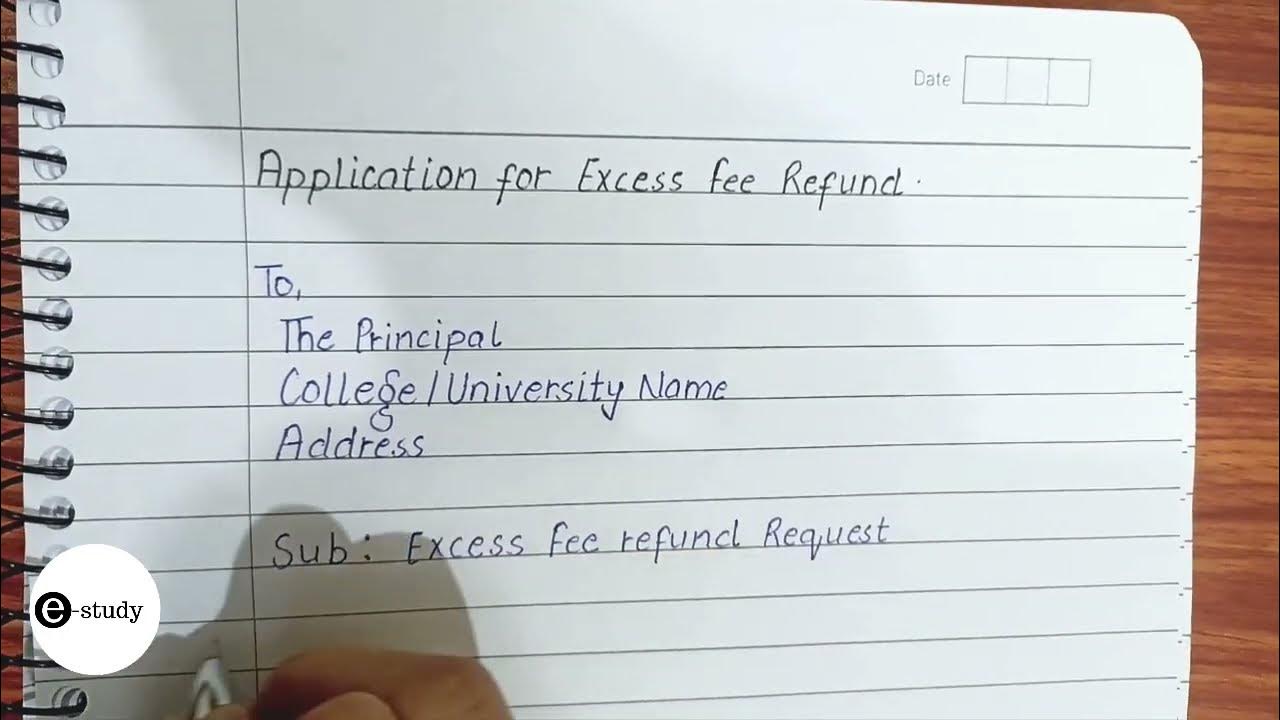 Date
Application for Excess fee Refund.
To,
The Principal
College/University Name
Address
Sub: Excess fee refund Request
e-study